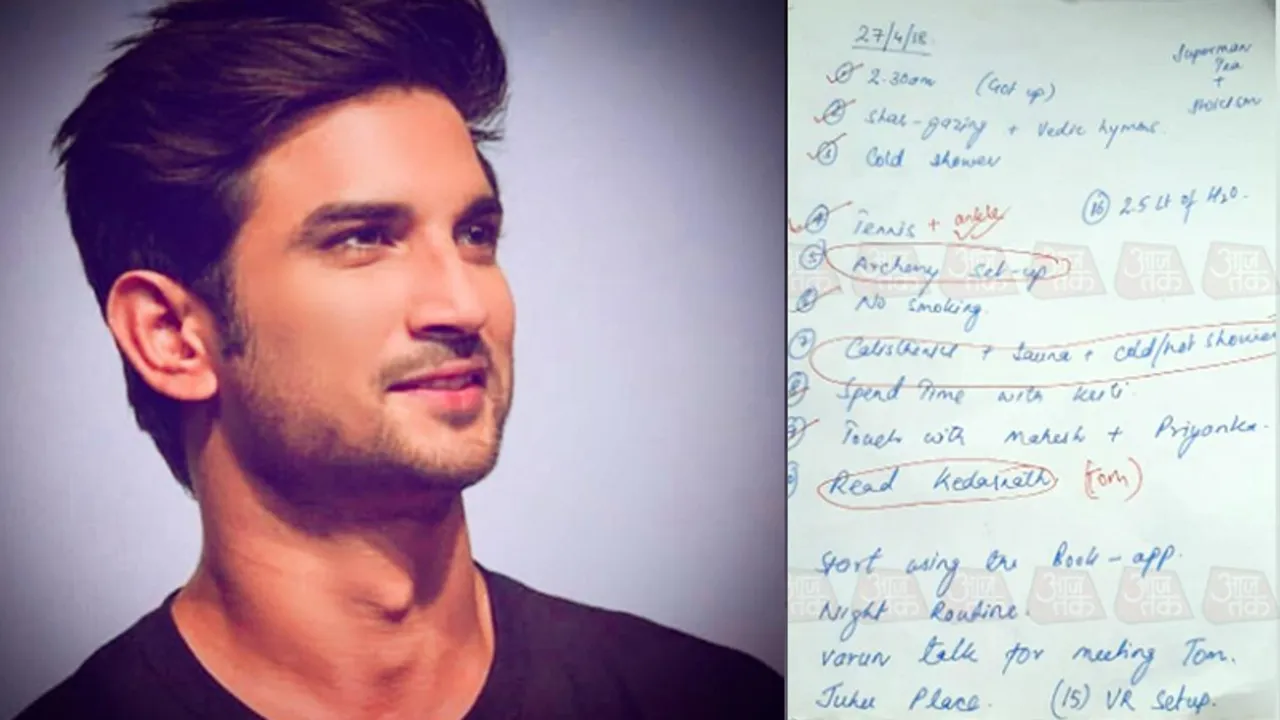 27/4/18
Superman
Tea
+
Stoicism
① 2.30am (Got up)
② Star-gazing + Vedic hymns.
③ Cold shower
④ Tennis + ankle
⑯ 2.5 Lt of H2O.
⑤ Archery set-up
⑥ No smoking.
⑦ Calisthenics + Sauna + cold/hot shower
⑧ Spend Time with Kriti.
⑨ Touch with Mahesh + Priyanka.
Read Kedarnath (Tom)
Start using the Book-app.
Night Routine.
Varun talk for meeting Tom.
Juhu Place. (15) VR Setup.
आज तक